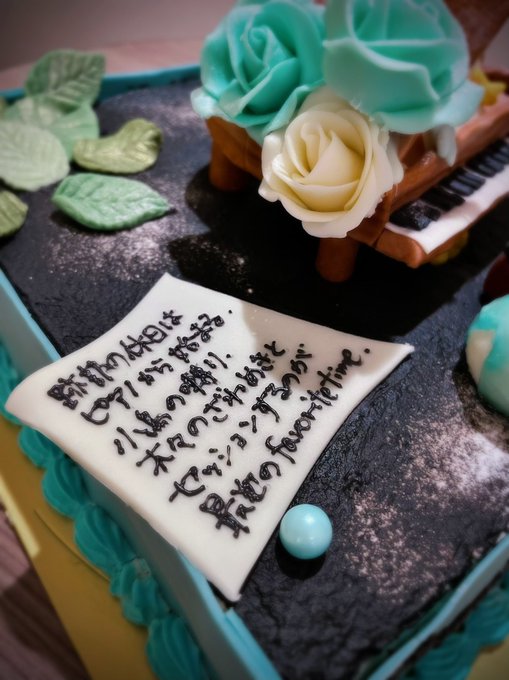 跡部の休日は
ピアノから始まる.
小鳥の囀り,
木々のざわめきと
セッションするのが
最近のfavorite time.